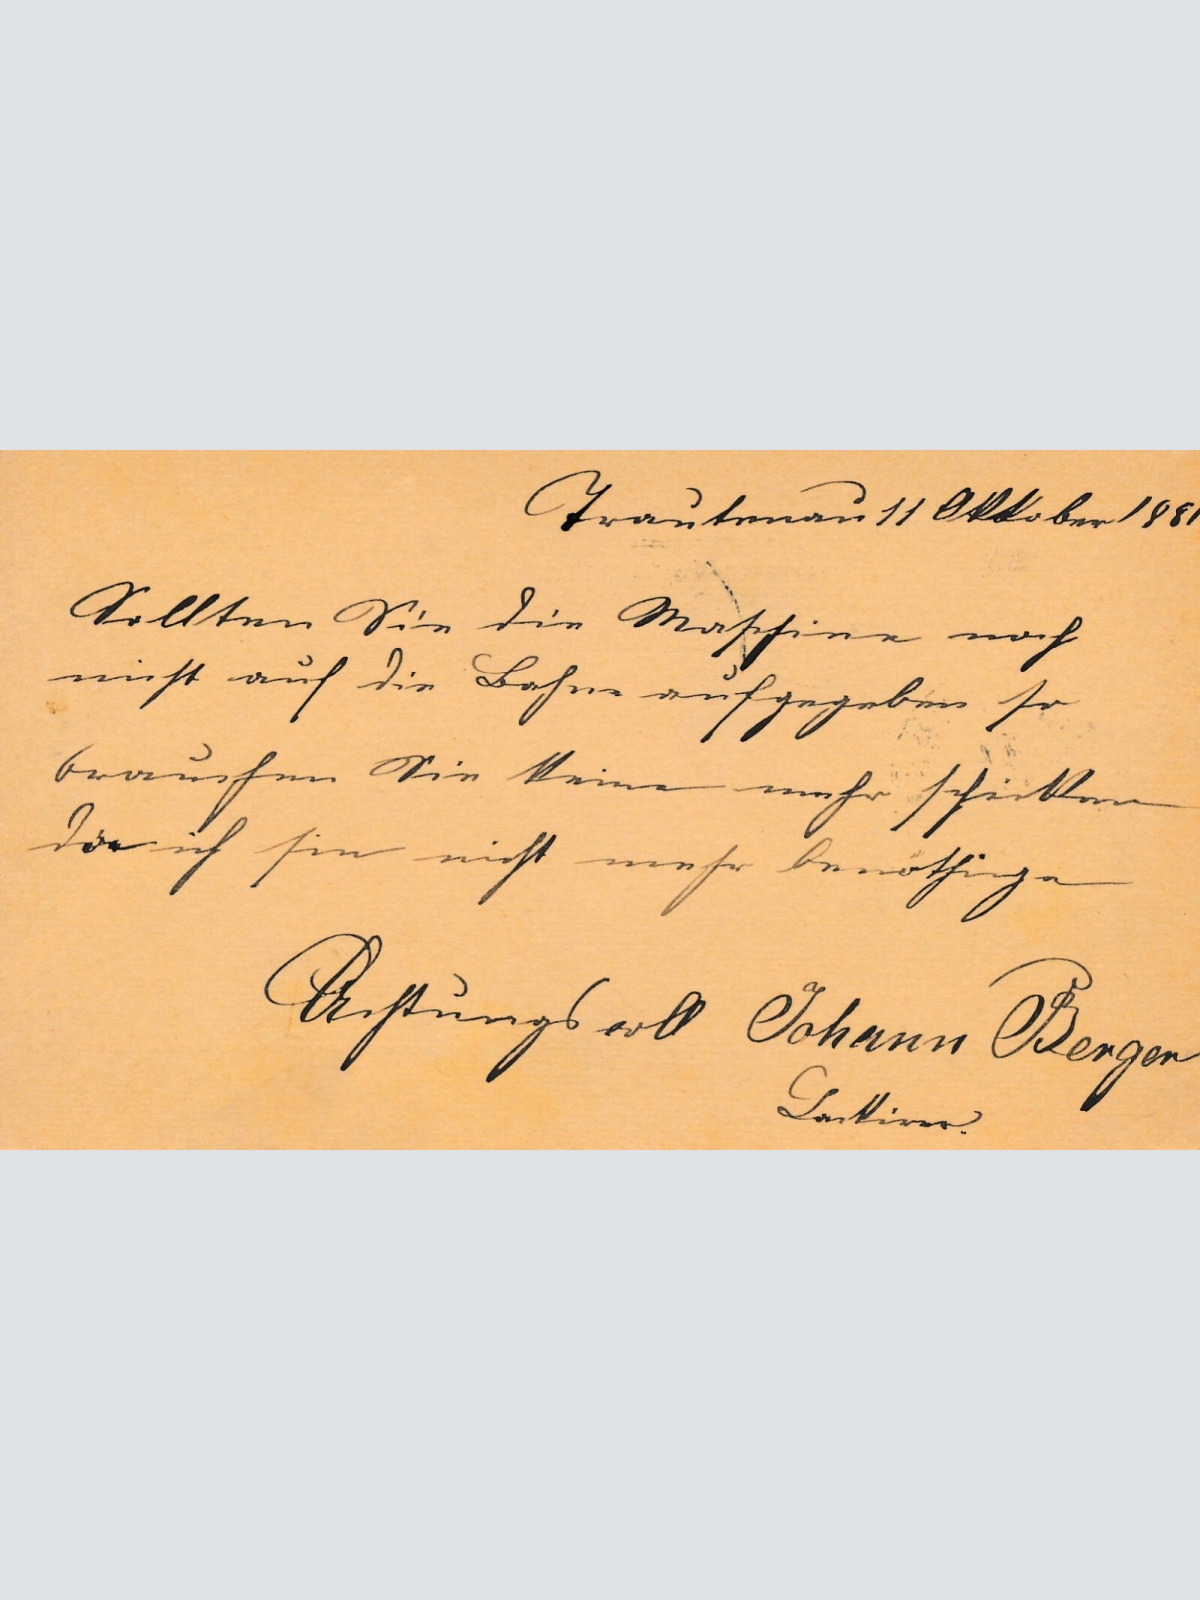 Trautenau 11 Oktober 1881
Sollten Sie die Maschine noch
nicht auf die Bahn aufgegeben so
brauchen Sie keine mehr schicken
da ich sie nicht mehr benöthige
Achtungsvoll Johann Berger
Lackirer.